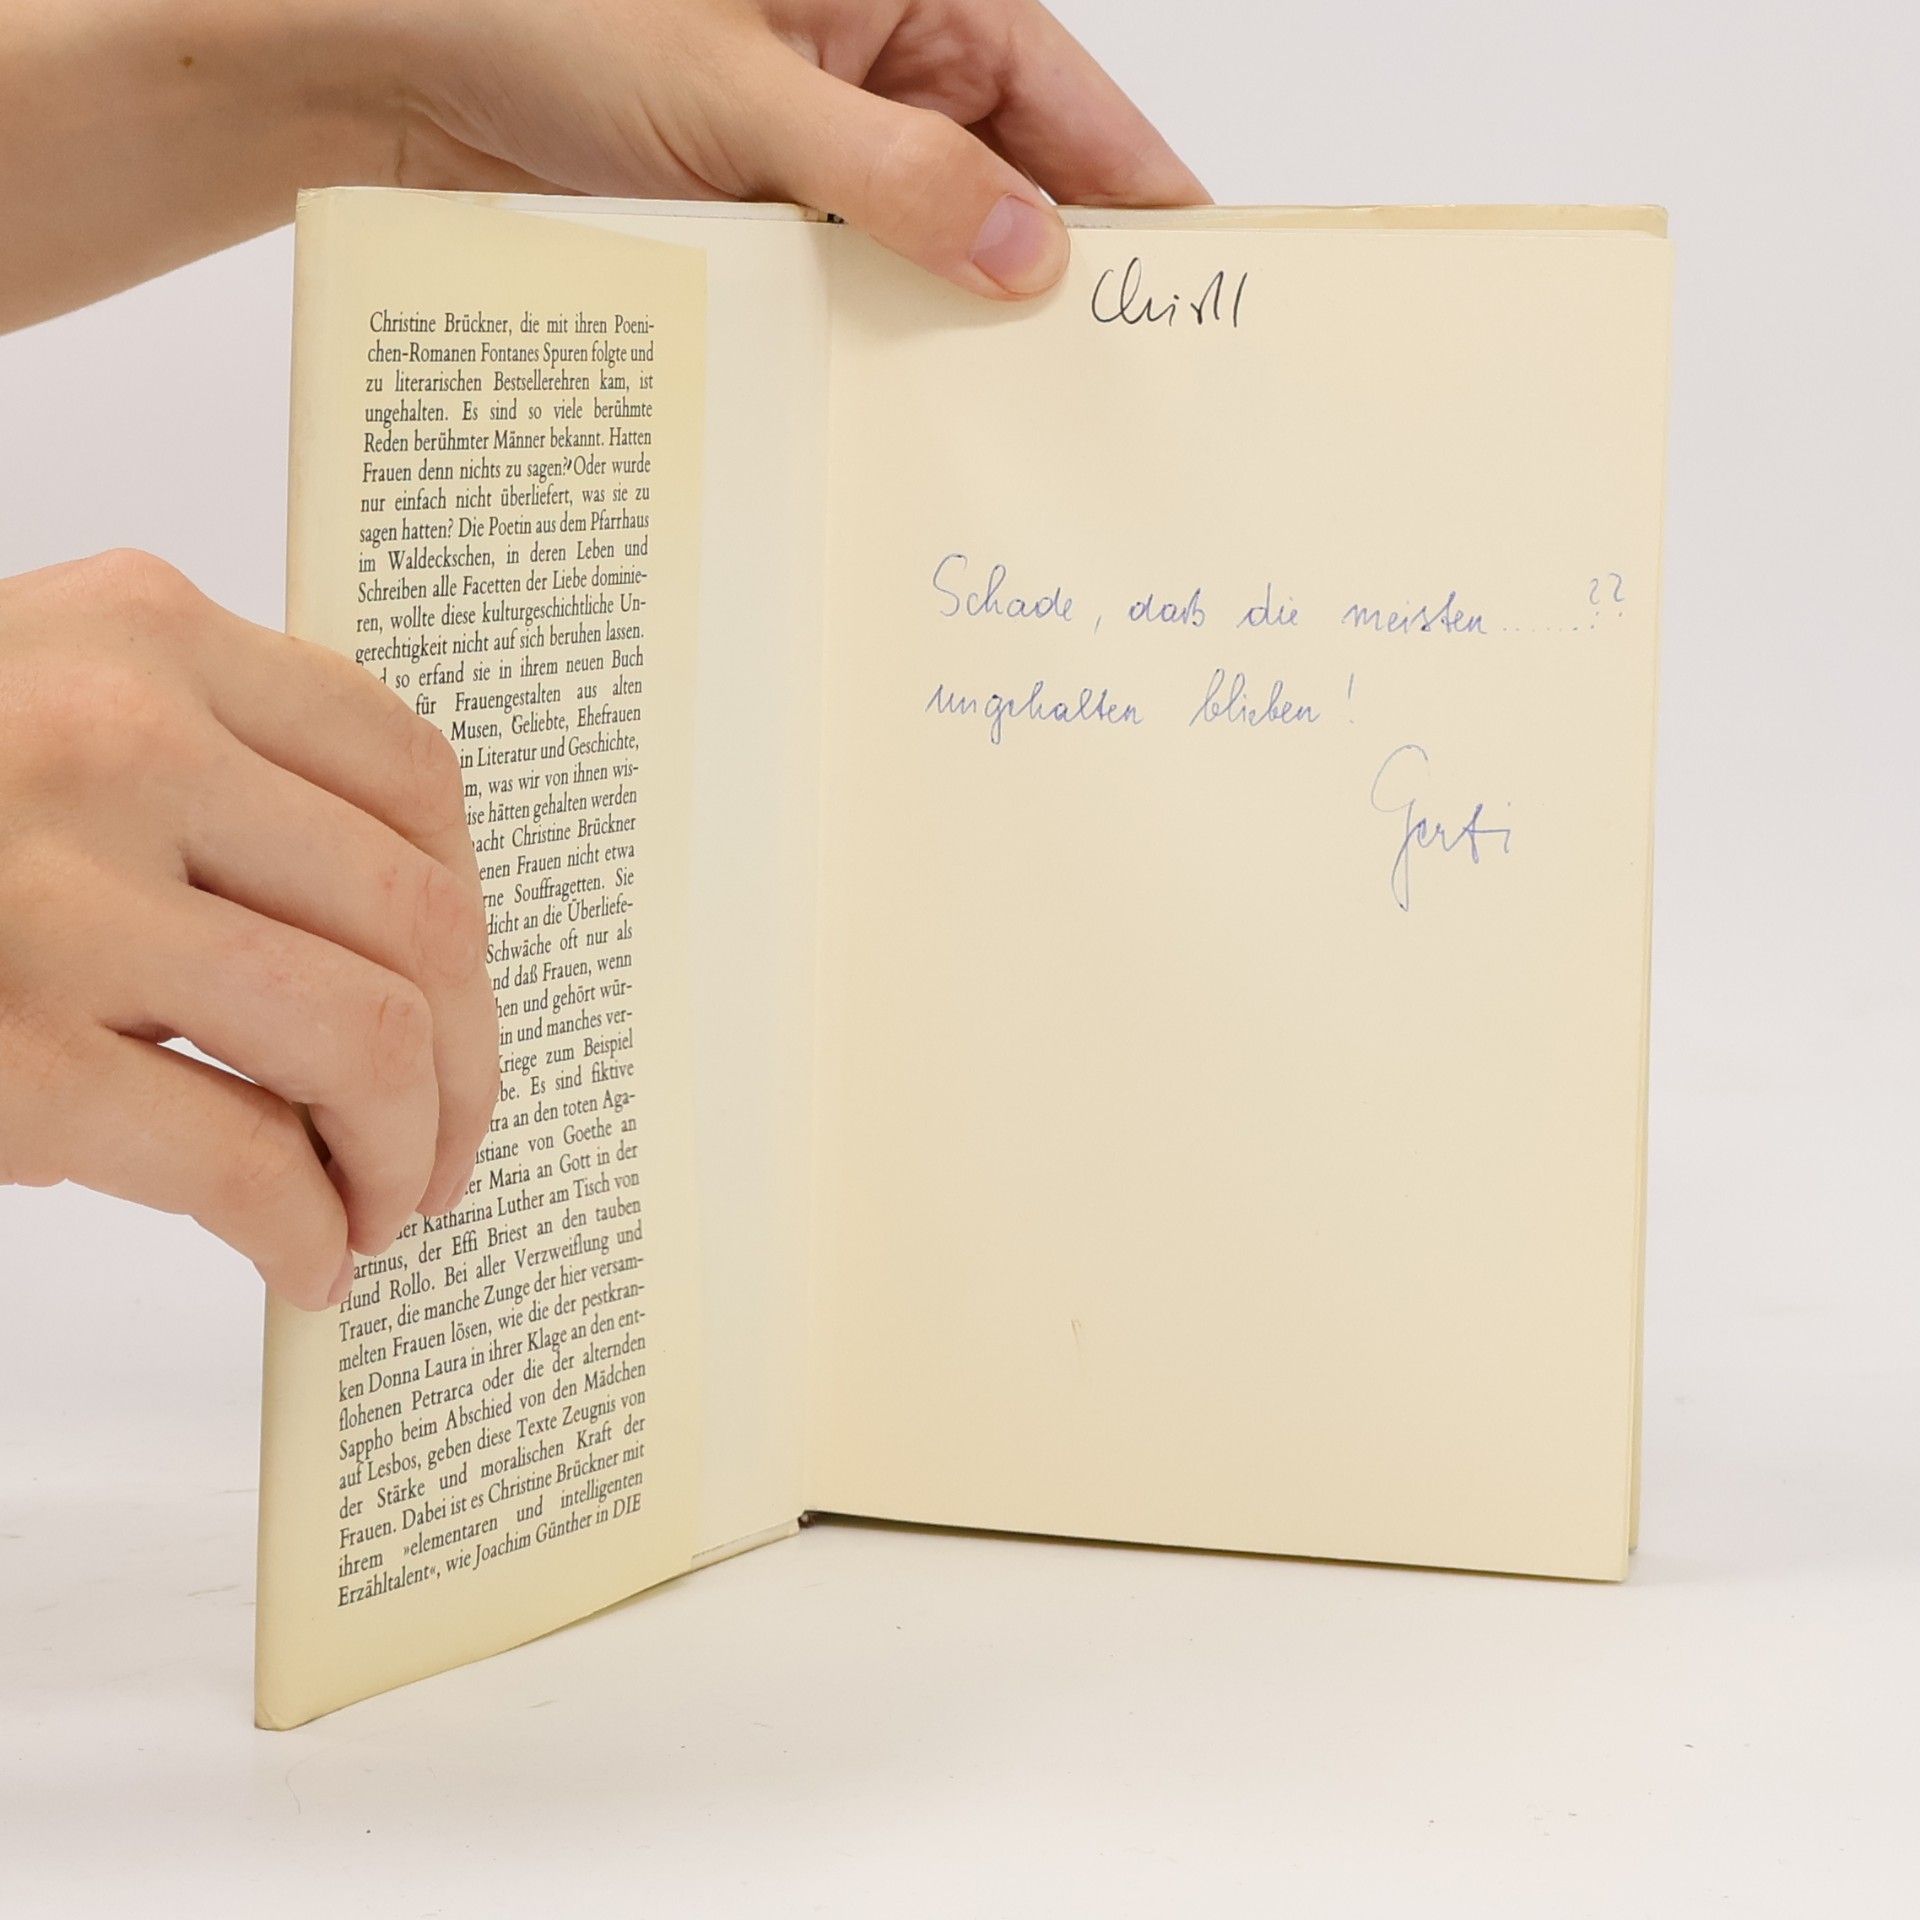 Christine Brückner, die mit ihren Poeni-
chen-Romanen Fontanes Spuren folgte und
zu literarischen Bestsellerehren kam, ist
ungehalten. Es sind so viele berühmte
Reden berühmter Männer bekannt. Hatten
Frauen denn nichts zu sagen? Oder wurde
nur einfach nicht überliefert, was sie zu
sagen hatten? Die Poetin aus dem Pfarrhaus
im Waldeckschen, in deren Leben und
Schreiben alle Facetten der Liebe dominie-
ren, wollte diese kulturgeschichtliche Un-
gerechtigkeit nicht auf sich beruhen lassen.
so erfand sie in ihrem neuen Buch
für Frauengestalten aus alten
Musen, Geliebte, Ehefrauen
in Literatur und Geschichte,
was wir von ihnen wis-
hätten gehalten werden
Christine Brückner
Frauen nicht etwa
Souffragetten. Sie
dicht an die Überliefe-
Schwäche oft nur als
daß Frauen, wenn
und gehört wür-
und manches ver-
Kriege zum Beispiel
Es sind fiktive
an den toten Aga-
von Goethe an
Maria an Gott in der
der Katharina Luther am Tisch von
artinus, der Effi Briest an den tauben
Hund Rollo. Bei aller Verzweiflung und
Trauer, die manche Zunge der hier versam-
melten Frauen lösen, wie die der pestkran-
ken Donna Laura in ihrer Klage an den ent-
flohenen Petrarca oder die der alternden
Sappho beim Abschied von den Mädchen
auf Lesbos, geben diese Texte Zeugnis von
der Stärke und moralischen Kraft der
Frauen. Dabei ist es Christine Brückner mit
ihrem »elementaren und intelligenten
Erzähltalent«, wie Joachim Günther in DIE
Christl
Schade, daß die meisten.......??
ungehalten blieben!
Gerti